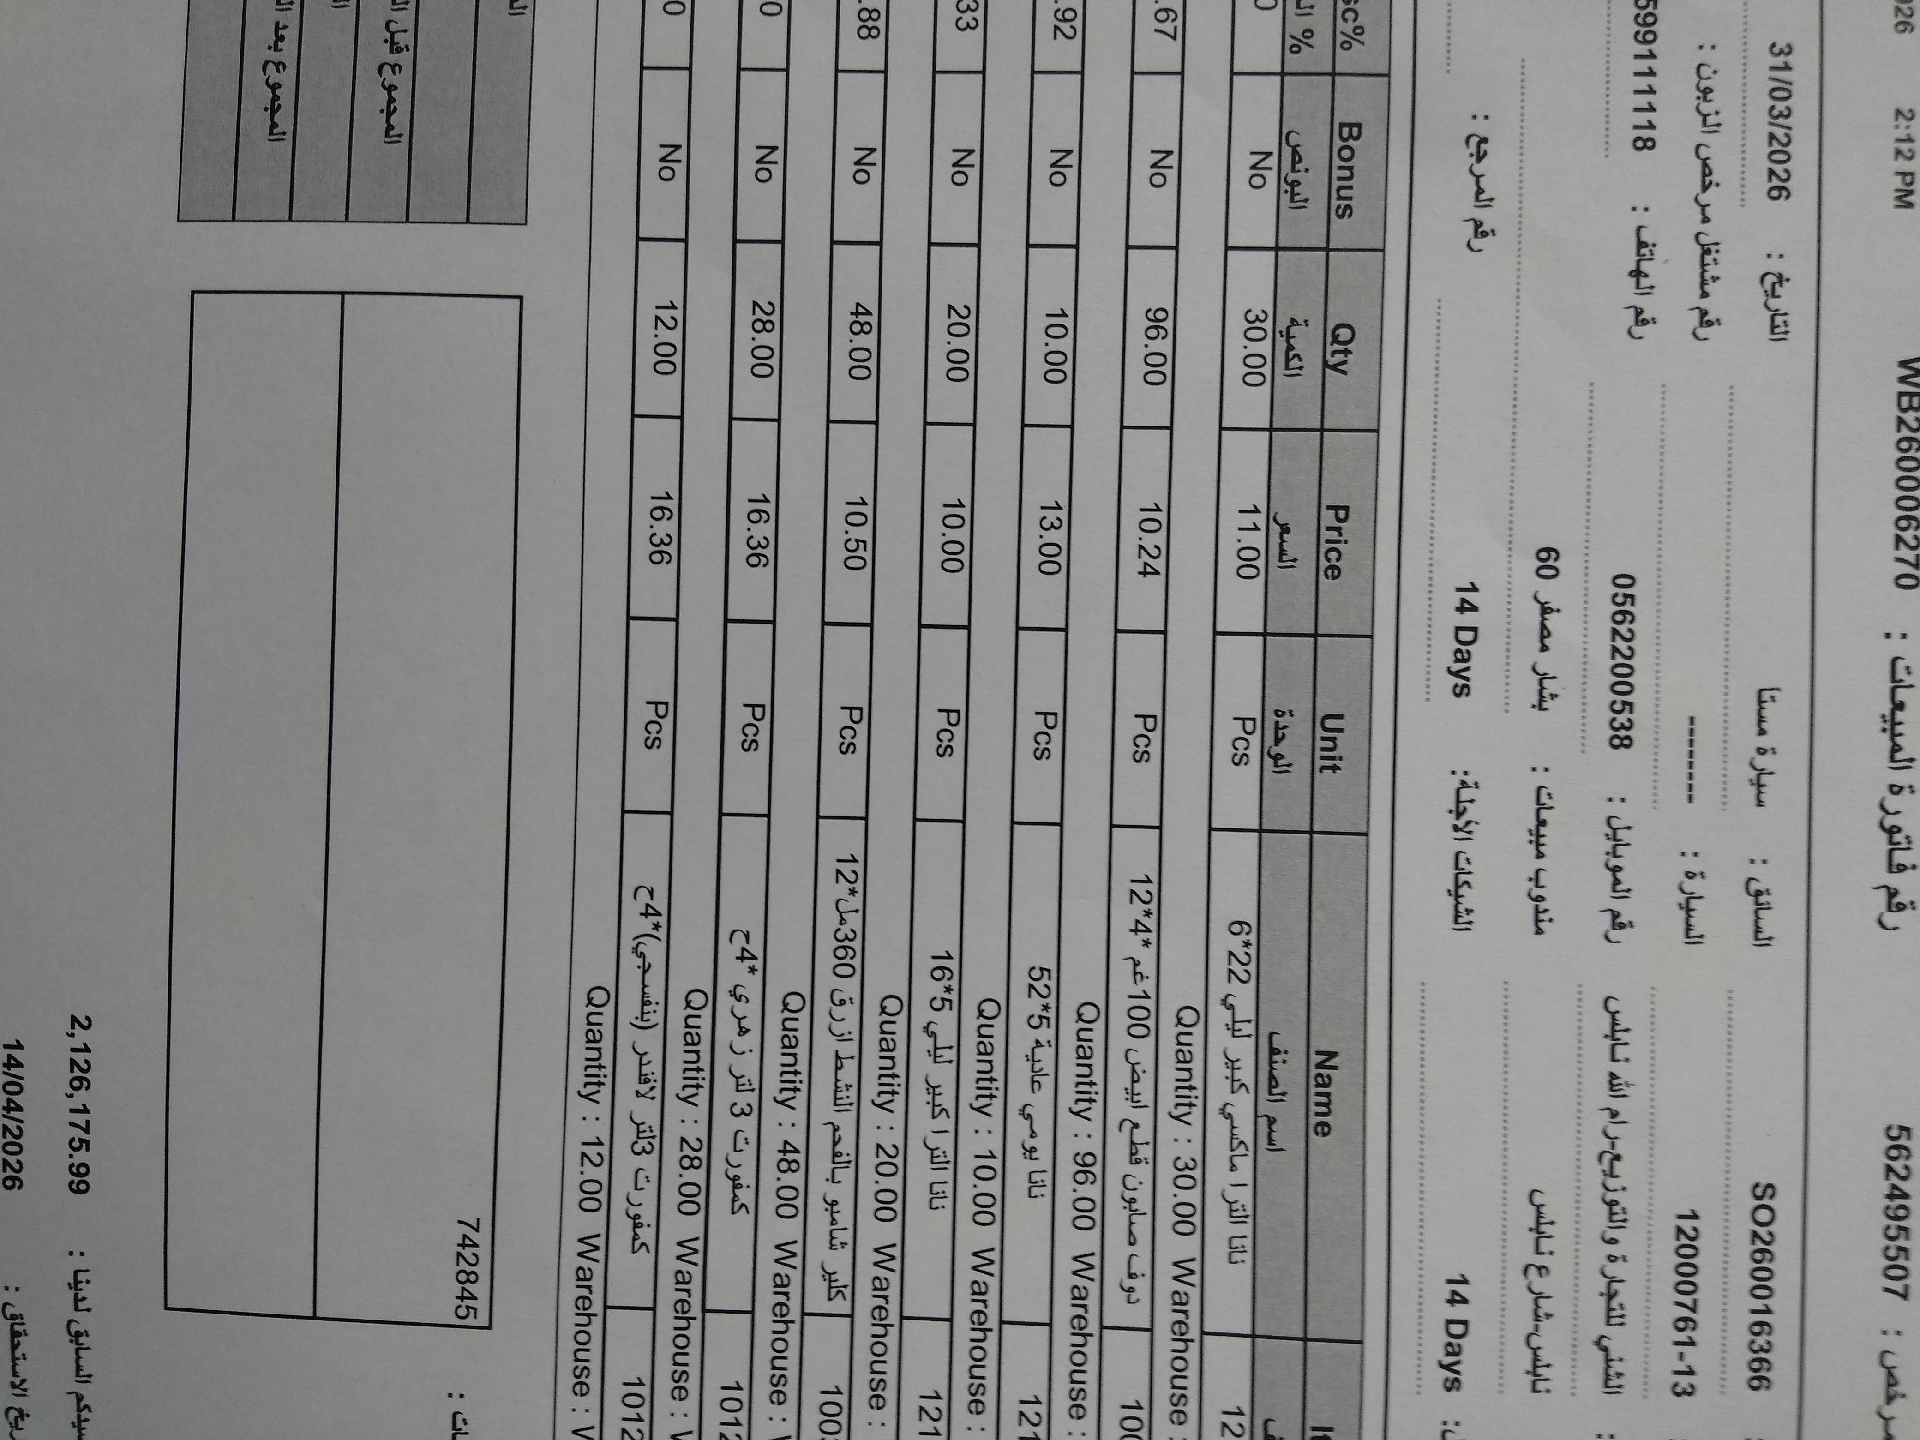 2:12 PM WB26006270 : رقم فاتورة المبيعات 562495507
التاريخ : 31/03/2026 السائق : سيارة مستا SO260016366
رقم مشتغل مرخص الزبون : السيارة : ------- 12000761-13
رقم الهاتف : 599111118 رقم الموبايل : 0562200538 الشني للتجارة والتوزيع-رام الله نابلس
مندوب مبيعات : بشار مصفر 60 نابلس-شارع نابلس
رقم المرجع : الشيكات الآجلة: 14 Days 14 Days
Bonus Qty Price Unit Name
البونص الكمية السعر الوحدة اسم الصنف
No 30.00 11.00 Pcs نانا الترا ماكسي كبير ليلي 22*6
Quantity : 30.00 Warehouse :
.67 No 96.00 10.24 Pcs دوف صابون قطع ابيض 100غم *4*12
Quantity : 96.00 Warehouse :
.92 No 10.00 13.00 Pcs نانا يومي عادية 5*52
Quantity : 10.00 Warehouse :
33 No 20.00 10.00 Pcs نانا الترا كبير ليلي 5*16
Quantity : 20.00 Warehouse :
.88 No 48.00 10.50 Pcs كلير شامبو بالفحم النشط ازرق 360مل*12
Quantity : 48.00 Warehouse :
0 No 28.00 16.36 Pcs كمفورت 3 لتر زهري *4ح
Quantity : 28.00 Warehouse :
0 No 12.00 16.36 Pcs كمفورت 3لتر لافندر (بنفسجي)*4ح
Quantity : 12.00 Warehouse :
742845
المجموع قبل
المجموع بعد
2,126,175.99
14/04/2026